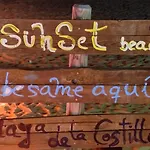 SunSet beac
besame aquí
laya de la Costilla